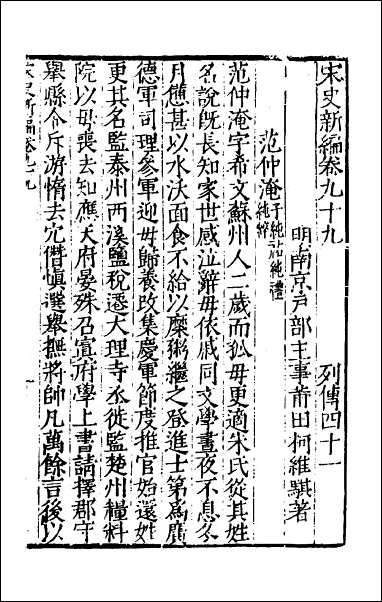 宋史新編卷九十九 列傳四十一
明南京戶部主事莆田柯維騏著
范仲淹子純祐純禮
純粹
范仲淹字希文蘇州人二歲而孤母更適朱氏從其姓
名說既長知家世感泣辭母依戚同文學晝夜不息冬
月憊甚以水沃面食不給以糜粥繼之登進士第爲廣
德軍司理參軍迎母歸養改集慶軍節度推官始還姓
更其名監泰州西溪鹽稅遷大理寺丞徙監楚州糧料
院以母喪去知應天府晏殊召寘府學上書請擇郡守
舉縣令斥游惰去冗僭愼選舉撫將帥凡萬餘言後以
史新編卷九十九